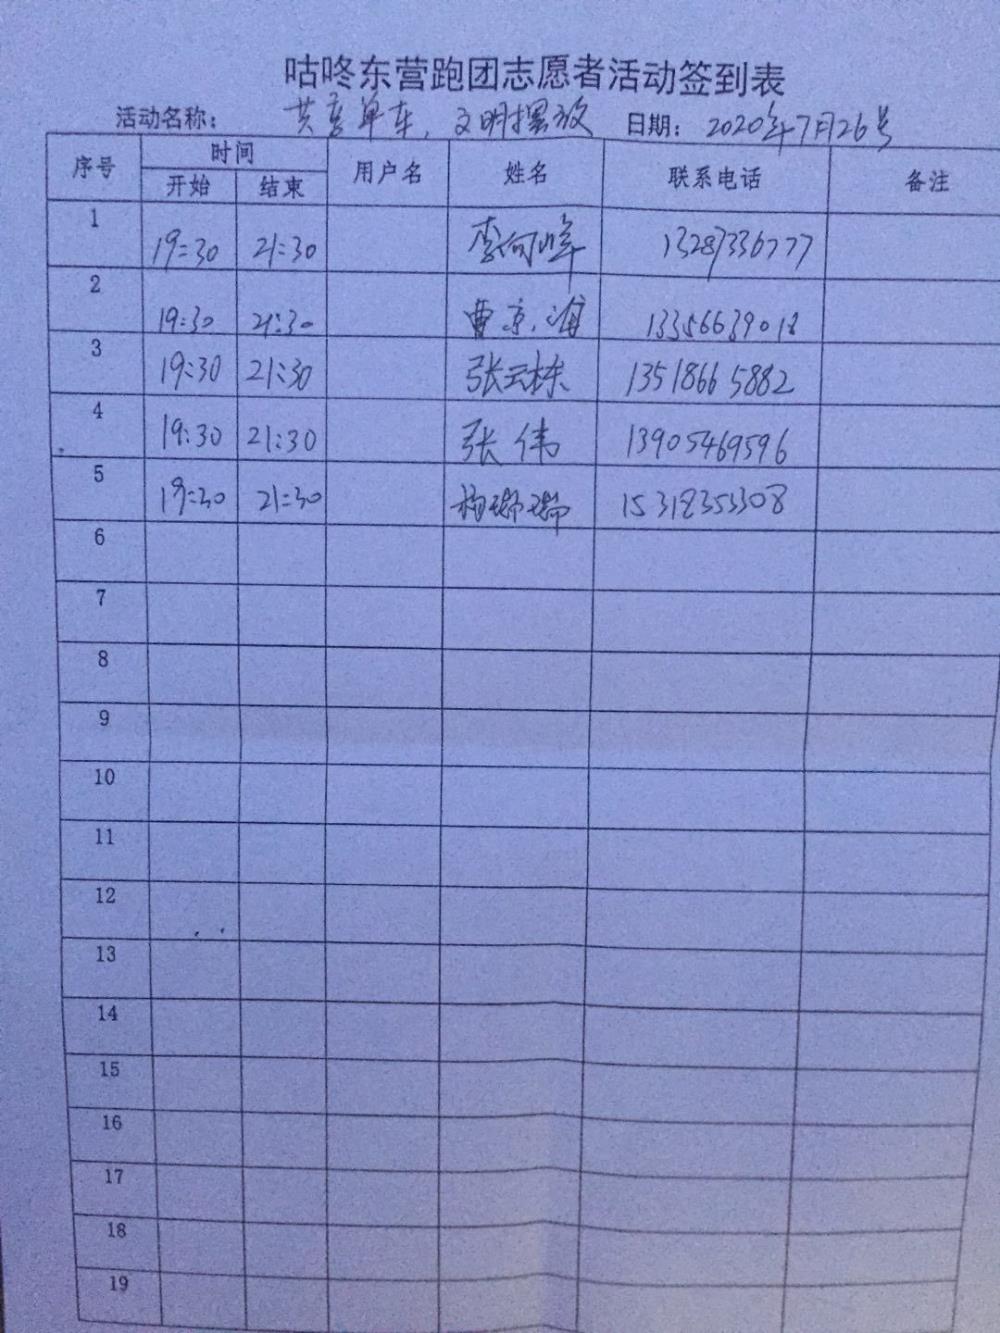 咕咚东营跑团志愿者活动签到表
活动名称： 共享单车，文明摆放 日期： 2020年7月26号
序号 时间 用户名 姓名 联系电话 备注
开始 结束
1 19:30 21:30 李向峰 13287336777
2 19:30 21:30 曹京海 13356639018
3 19:30 21:30 张云栋 13518665882
4 19:30 21:30 张伟 13905469596
5 19:30 21:30 杨珊珊 15318353308
6
7
8
9
10
11
12
13
14
15
16
17
18
19